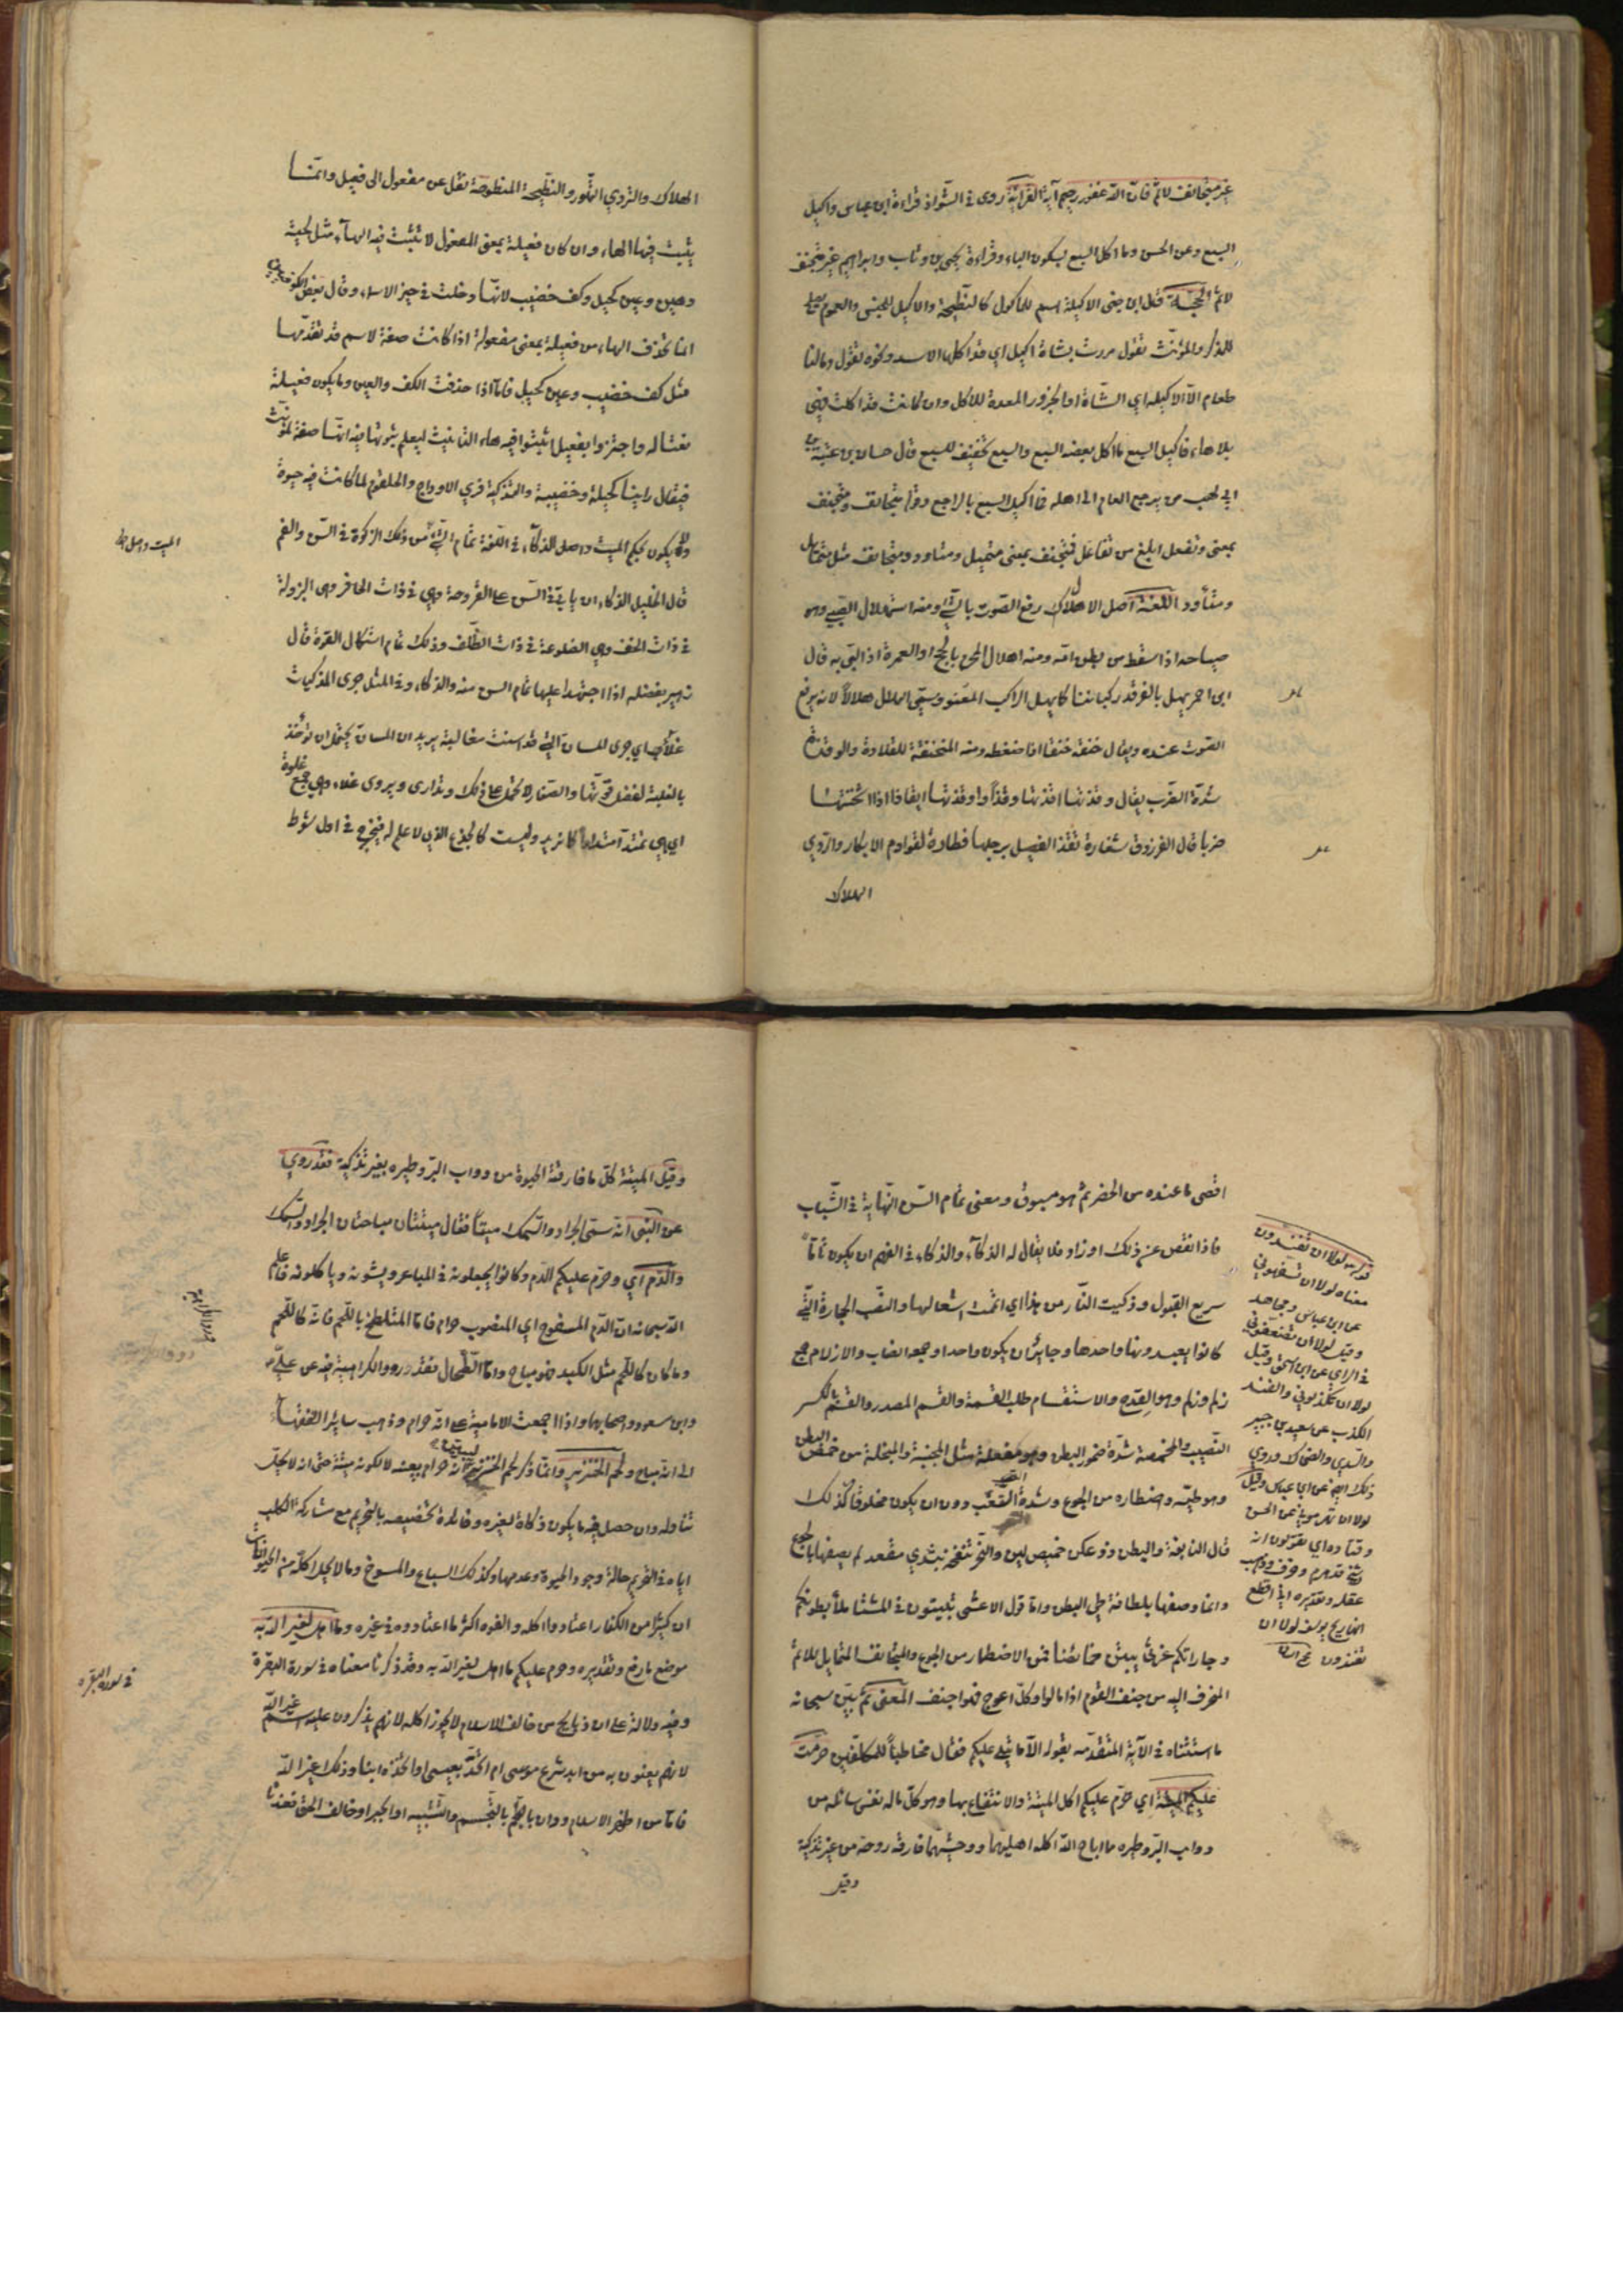 غير متجانف لاثم فان الله غفور رحيم آية القراءة روى في الشواذ قراءة ابن عباس واكيل
السبع وعن الحسن وما اكل السبع بسكون الباء وقراءة يحيى بن وثاب وابراهيم غير متجنف
لاثم الحجة قال ابن جنى الاكيلة اسم للماكول كالنطيحة والاكيل للجنس والعموم يصلح
للذكر والمؤنث تقول مررت بشاة اكيل اي قد اكلها الاسد ونحوه تقول ومالنا
طعام الا الاكيلة اي الشاة او الجزور المعدة للاكل وان كانت قد اكلت فهي
بلا هاء فاكيل السبع ما اكل بعضه السبع والسبع تخفيف للسبع قال حسان في عتبة بن
ابي لهب من يرجع العام الى اهله فما اكيل السبع بالراجع وقوله متجانف ومتجنف
بمعنى وتفعل ابلغ من تفاعل فمتجنف بمعنى متميل ومتاود ومتجانف مثل متمايل
ومتأود اللغة اصل الاهلال رفع الصوت بالشيء ومنه استهلال الصبي وهو
صياحه اذا سقط من بطن امه ومنه اهلال المحرم بالحج او العمرة اذا لبى به قال
ابن احمر يهل بالفرقد ركباننا كما يهل الراكب المعتمر وسمي الهلال هلالا لانه يرفع
الصوت عنده ويقال خنقه خنقا اذا ضغطه ومنه المخنقة للقلادة والوقذ
شدة الضرب يقال وقذتها اقذها وقذا واوقذتها ايقاذا اذا اثخنتها
ضربا قال الفرزدق شغارة تقذ الفصيل برجلها فطارة لقوادم الابكار والتردي
الهلاك
الهلاك والتردي التهور والنطيحة المنطوحة نقل عن مفعول الى فعيل وانما
يثبت فيها الهاء وان كان فعيلة بمعنى المفعول لا تثبت فيه الهاء مثل لحية
دهين وعين كحيل وكف خضيب لانها دخلت في حيز الاسماء وقال بعض الكوفيين
انما تحذف الهاء من فعيلة بمعنى مفعولة اذا كانت صفة لاسم قد تقدمها
مثل كف خضيب وعين كحيل فاما اذا حذفت الكف والعين وما يكون فعيلة
نعتا له واجتزوا بفعيل اثبتوا فيه هاء التانيث ليعلم بثبوتها فيه انها صفة لمؤنث
فيقال راينا كحيلة وخضيبة والتذكية فري الاوداج والحلقوم لما كانت فيه حيوة
ولا يكون بحكم الميت واصل الذكاء في اللغة تمام الشيء فمن ذلك الزكوة في السن والفهم
الميت واصل الذ
قال الخليل الذكاء ان ياتي في السن على القروحة وهي في ذات الحافر وهي البزولة
في ذات الخف وهي الصلوغة في ذات الظلف وذلك تمام استكمال القوة قال
زهير يفضله اذا اجتهدا عليها تمام السن منه والذكاء وفي المثل جرى المذكيات
غلاب اي جرى المسان التي قد اسنت مغالبة يريد ان المسان يحتمل ان تؤخذ
بالغلبة لفضل قوتها والصغار لا تحمل على ذلك وتدارى ويروى غلاء وهي جمع غلوة
اي هي تمتد امتدادا كما تريد وليست كالجذع الذي لا علم له فيخرج في اول شوط
اقصى ما عنده من الحضر ثم هو مسبوق ومعنى تمام السن النهاية في الشباب
فاذا نقص عن ذلك او زاد فلا يقال له الذكاء والذكاء في الفهم ان يكون تاما
سريع القبول وذكيت النار من هذا اي اتممت اشعالها والنصب الحجارة التي
كانوا يعبدونها واحدها وجايز ان يكون واحدا وجمعه انصاب والازلام جمع
زلم وزلم وهو القدح والاستقسام طلب القسمة والقسم المصدر والقسم بالكسر
النصيب والمخمصة شدة ضمور البطن وهو مفعلة مثل المجبنة والمبخلة من خمص البطن
وهو طيه واضطماره من الجوع وشدة السغب دون ان يكون مخلوقا كذلك
قال النابغة والبطن ذو عكن خميص لين والنحر تنفجه بثدي مقعد لم يصفها بالجوع
وانما وصفها بلطافة طي البطن واما قول الاعشى تبيتون في المشتا ملأ بطونكم
وجاراتكم غرثى يبتن خمائصا فمن الاضطمار من الجوع والمتجانف المتمايل للاثم
المنحرف اليه من جنف القوم اذا مالوا وكل اعوج فهو اجنف المعنى ثم بين سبحانه
ما استثناه في الآية المتقدمة بقوله الا ما يتلى عليكم فقال مخاطبا للمكلفين حرمت
عليكم الميتة اي حرم عليكم اكل الميتة والانتفاع بها وهو كل ما له نفس سائلة من
دواب البر وطيره مما اباح الله اكله اهليهما ووحشيهما فارقه روحه من غير تذكية
وقيل
قوله لولا ان تفندون
معناه لولا ان تسفهوني
عن ابن عباس ومجاهد
وقيل لولا ان تضعفوني
في الراي عن ابن اسحق وقيل
لولا ان تكذبوني والفند
الكذب عن سعيد بن جبير
والسدي والضحاك وروي
ذلك ايضا عن ابن عباس وقيل
لولا ان تهرموني عن الحسن
وقتادة اي تقولون انه
شيخ قد هرم وخرف وذهب
عقله وتقديره اني اقطع
انها ريح يوسف لولا ان
تفندون
وقيل الميتة كل ما فارقته الحيوة من دواب البر وطيره بغير تذكية فقد روي
عن النبي انه سمى الجراد والسمك ميتا فقال ميتتان مباحتان الجراد والسمك
والدم اي وحرم عليكم الدم وكانوا يجعلونه في المباعر ويشونه وياكلونه فاعلم
الله سبحانه ان الدم المسفوح اي المصبوب حرام فاما المتلطخ باللحم فانه كاللحم
وما كان كاللحم مثل الكبد فهو مباح واما الطحال فقد رووا الكراهية فيه عن علي
وابن مسعود واصحابهما واذا اجمعت الامامية على انه حرام وذهب سائر الفقهاء
الى انه مباح ولحم الخنزير وانما ذكر لحم الخنزير ليبين انه حرام بعينه لا لكونه ميتة حتى انه لا يحل
تناوله وان حصل فيه ما يكون ذكاة لغيره وفائدة تخصيصه بالتحريم مع مشاركة الكلب
اياه في التحريم حالة وجود الحيوة وعدمها وكذلك السباع والمسوخ وما لا يحل اكله من الحيوانات
ان كثيرا من الكفار اعتادوا اكله والفوه اكثر ما اعتادوه في غيره وما اهل لغير الله به
موضع ما رفع وتقديره وحرم عليكم ما اهل لغير الله به وقد ذكرنا معناه في سورة البقرة
في سورة البقرة
وفيه دلالة على ان ذبايح من خالف الاسلام لا يجوز اكله لانهم يذكرون عليه اسم غير الله
لانهم يعنون به من ابد شرع موسى او اتحد بعيسى او اتخذه ابنا وذلك غير الله
فاما من اظهر الاسلام ودان بالتجسم والتشبيه او الجبر او خالف الحق فعندنا